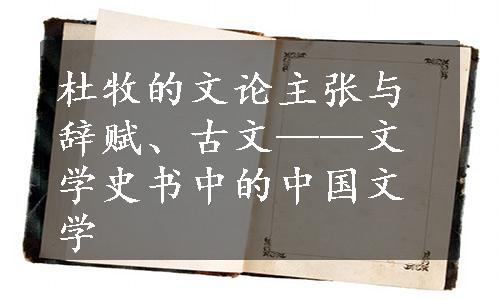 杜牧的文论主张与
辞赋、古文——文
学史书中的中国文
学